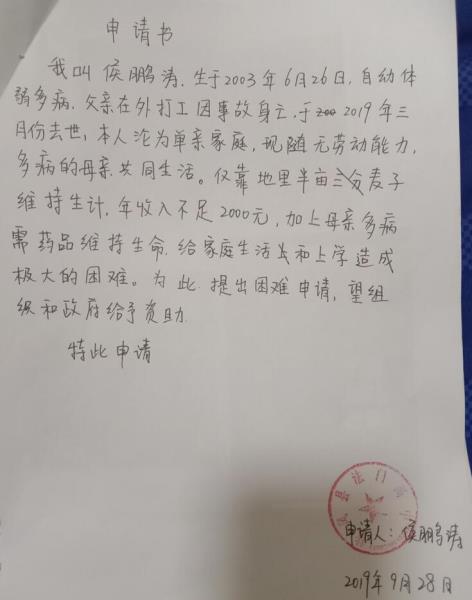 申请书
我叫侯鹏涛，生于2003年6月26日，自幼体
弱多病，父亲在外打工因事故身亡，于2019年三
月份去世，本人沦为单亲家庭，现随无劳动能力，
多病的母亲共同生活。仅靠地里半亩三分麦子
维持生计，年收入不足2000元，加上母亲多病
需药品维持生命，给家庭生活和上学造成
极大的困难。为此提出困难申请，望组
织和政府给予资助
特此申请
县法门高
申请人：侯鹏涛
2019年9月28日